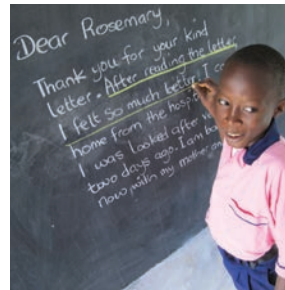 Dear Rosemary,
Thank you for your kind
letter. After reading the letter,
I felt so much better. I
home from the
I was looked after
two days ago. I am
now with my mother